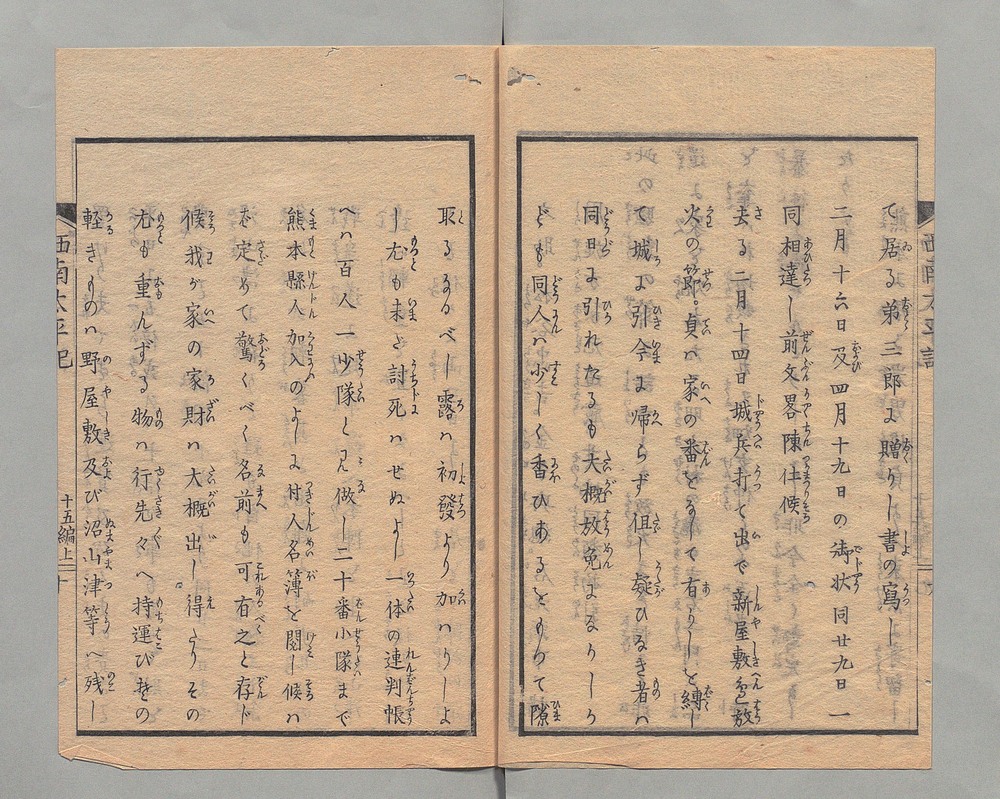 て居る弟三郎に贈りし書の寫し
二月十六日及四月十九日の御状同廿九日一
同相達し前文畧陳仕候
去る二月十四日城兵打て出で新屋敷邉放
火の節。貞ハ家の番をなして有りしを縛し
て城に引今に帰らず但し疑ひなき者ハ
同日に引れたるも大概放免になりしか
ども同人ハ少しく香ひあるをもつて隙
取るなるべし露ハ初發より加ハりしよ
し尤も未だ討死ハせぬよし一体の連判帳
へハ百人一少隊と見做し二十番小隊まで
熊本縣人加入のよしに付人名簿を閲し候ハ
を定めて驚くべく名前も可有之と存ド
候我が家の家財ハ大概出し得たりその
尤も重んずる物ハ行先々へ持運び其の
軽きものハ野屋敷及び沼山津等へ残し
西南太平記
十五編上
西南太平記